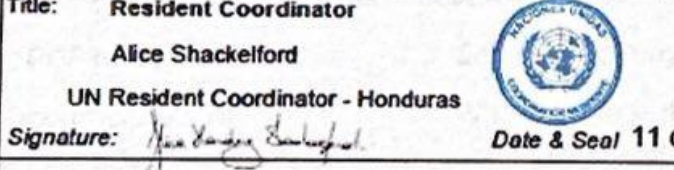 Title: Resident Coordinator
Alice Shackelford
UN Resident Coordinator - Honduras
NACIONES UNIDAS
Signature:
Date & Seal 11